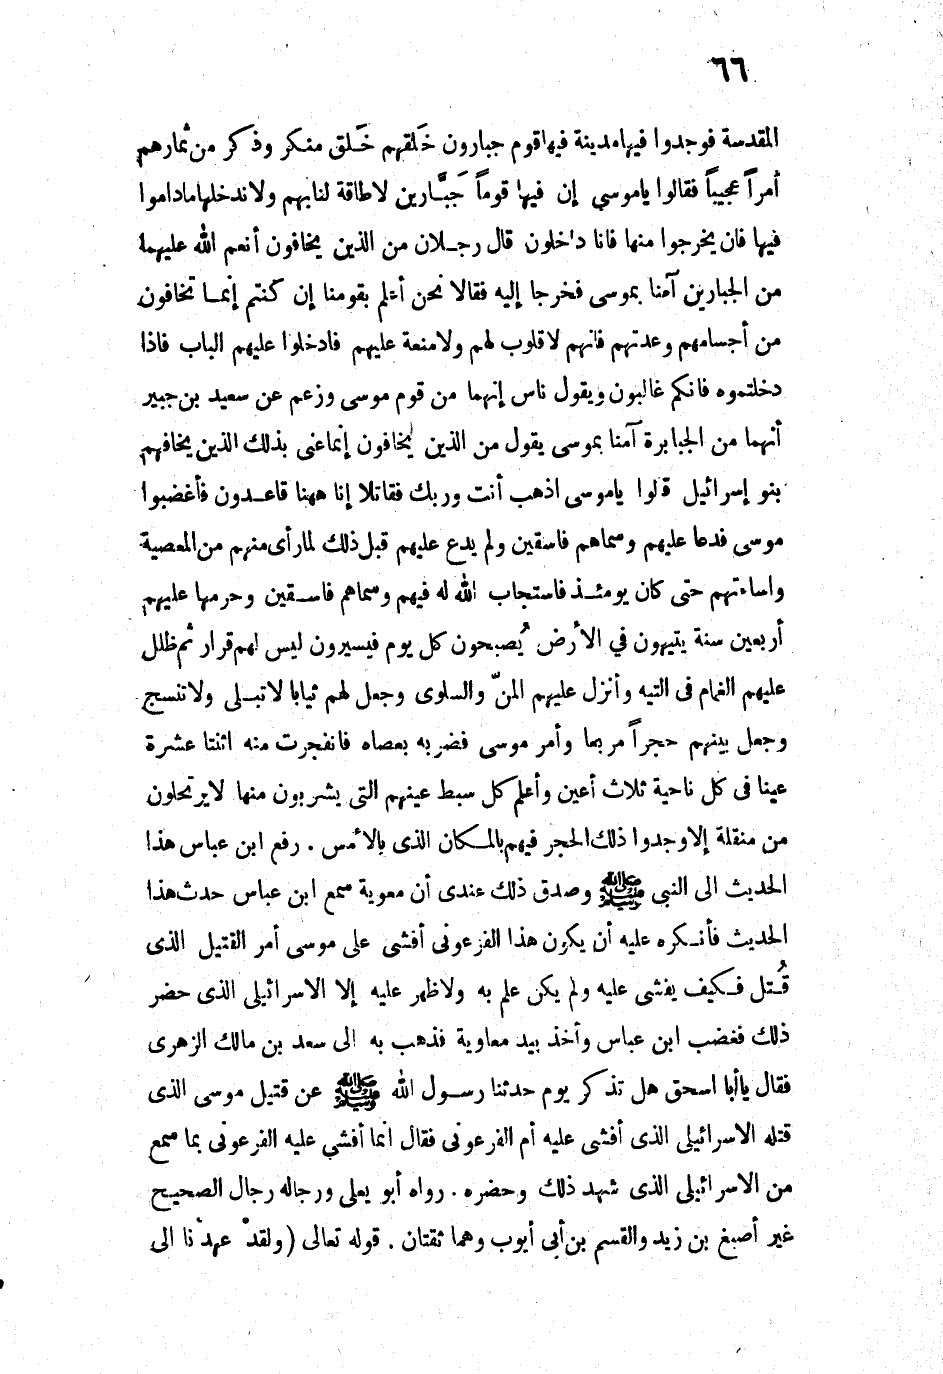 ٦٦
المقدسة فوجدوا فيها مدينة فيها قوم جبارون خَلقهم خَلق منكر وذكر من ثمارهم
أمراً عجيباً فقالوا ياموسي إن فيها قوماً جَبَّارين لا طاقة لنا بهم ولا ندخلها ماداموا
فيها فان يخرجوا منها فانا داخلون قال رجلان من الذين يخافون أنعم الله عليهما
من الجبارين آمنا بموسى فخرجا إليه فقالا نحن أعلم بقومنا إن كنتم إنما تخافون
من أجسامهم وعدتهم فانهم لا قلوب لهم ولا منعة عليهم فادخلوا عليهم الباب فاذا
دخلتموه فانكم غالبون ويقول ناس إنهما من قوم موسى وزعم عن سعيد بن جبير
أنهما من الجبابرة آمنا بموسى يقول من الذين يُخافون إنما عنى بذلك الذين يخافهم
بنو إسرائيل قالوا ياموسى اذهب أنت وربك فقاتلا إنا ههنا قاعدون فأغضبوا
موسى فدعا عليهم وسماهم فاسقين ولم يدع عليهم قبل ذلك لما رأى منهم من المعصية
واساءتهم حتى كان يومئذ فاستجاب الله له فيهم وسماهم فاسقين وحرمها عليهم
أربعين سنة يتيهون في الأرض يُصبحون كل يوم فيسيرون ليس لهم قرار ثم ظلل
عليهم الغمام فى التيه وأنزل عليهم المنّ والسلوى وجعل لهم ثيابا لا تبلى ولا تنسج
وجعل بينهم حجراً مربعا وأمر موسى فضربه بعصاه فانفجرت منه اثنتا عشرة
عينا فى كل ناحية ثلاث أعين وأعلم كل سبط عينهم التى يشربون منها لايرتحلون
من منقلة إلا وجدوا ذلك الحجر فيهم بالمكان الذى بالأمس . رفع ابن عباس هذا
الحديث الى النبى ﷺ وصدق ذلك عندى أن معوية سمع ابن عباس حدث هذا
الحديث فأنكره عليه أن يكون هذا الفرعونى أفشى على موسى أمر القتيل الذى
قُتل فكيف يفشى عليه ولم يكن علم به ولاظهر عليه إلا الاسرائيلى الذى حضر
ذلك فغضب ابن عباس وأخذ بيد معاوية فذهب به الى سعد بن مالك الزهرى
فقال ياأبا اسحق هل تذكر يوم حدثنا رسول الله ﷺ عن قتيل موسى الذى
قتله الاسرائيلى الذى أفشى عليه أم الفرعونى فقال انما أفشي عليه الفرعونى بما سمع
من الاسرائيلى الذى شهد ذلك وحضره . رواه أبو يعلى ورجاله رجال الصحيح
غير أصبغ بن زيد والقسم بن أبى أيوب وهما ثقتان . قوله تعالى (ولقدْ عهدْنا الى